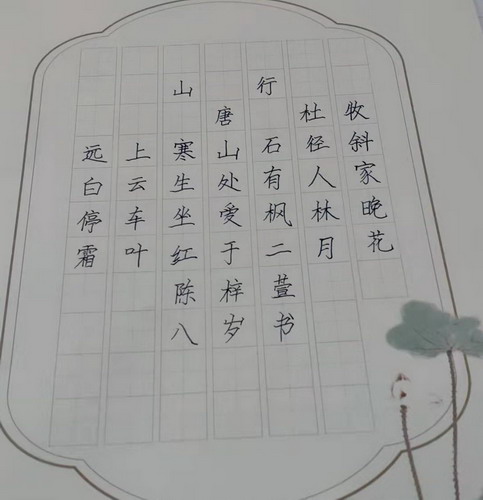 山行
唐杜牧
远上寒山石径斜
白云生处有人家
停车坐爱枫林晚
霜叶红于二月花
陈梓萱
八岁书